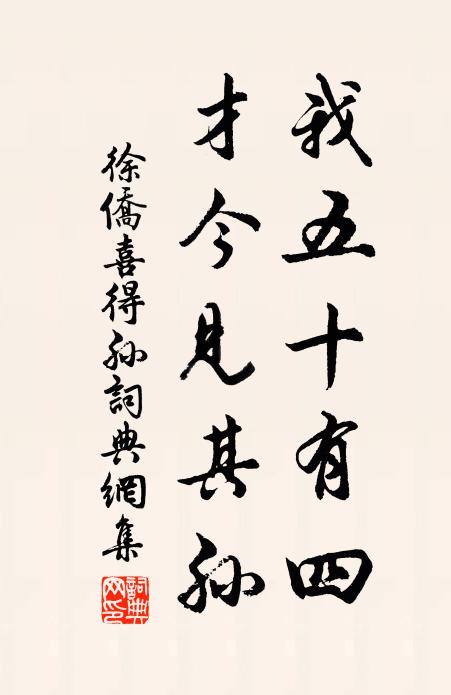 我五十有四
才今見其孫
徐僑喜得孫詞典網集
詞典網印